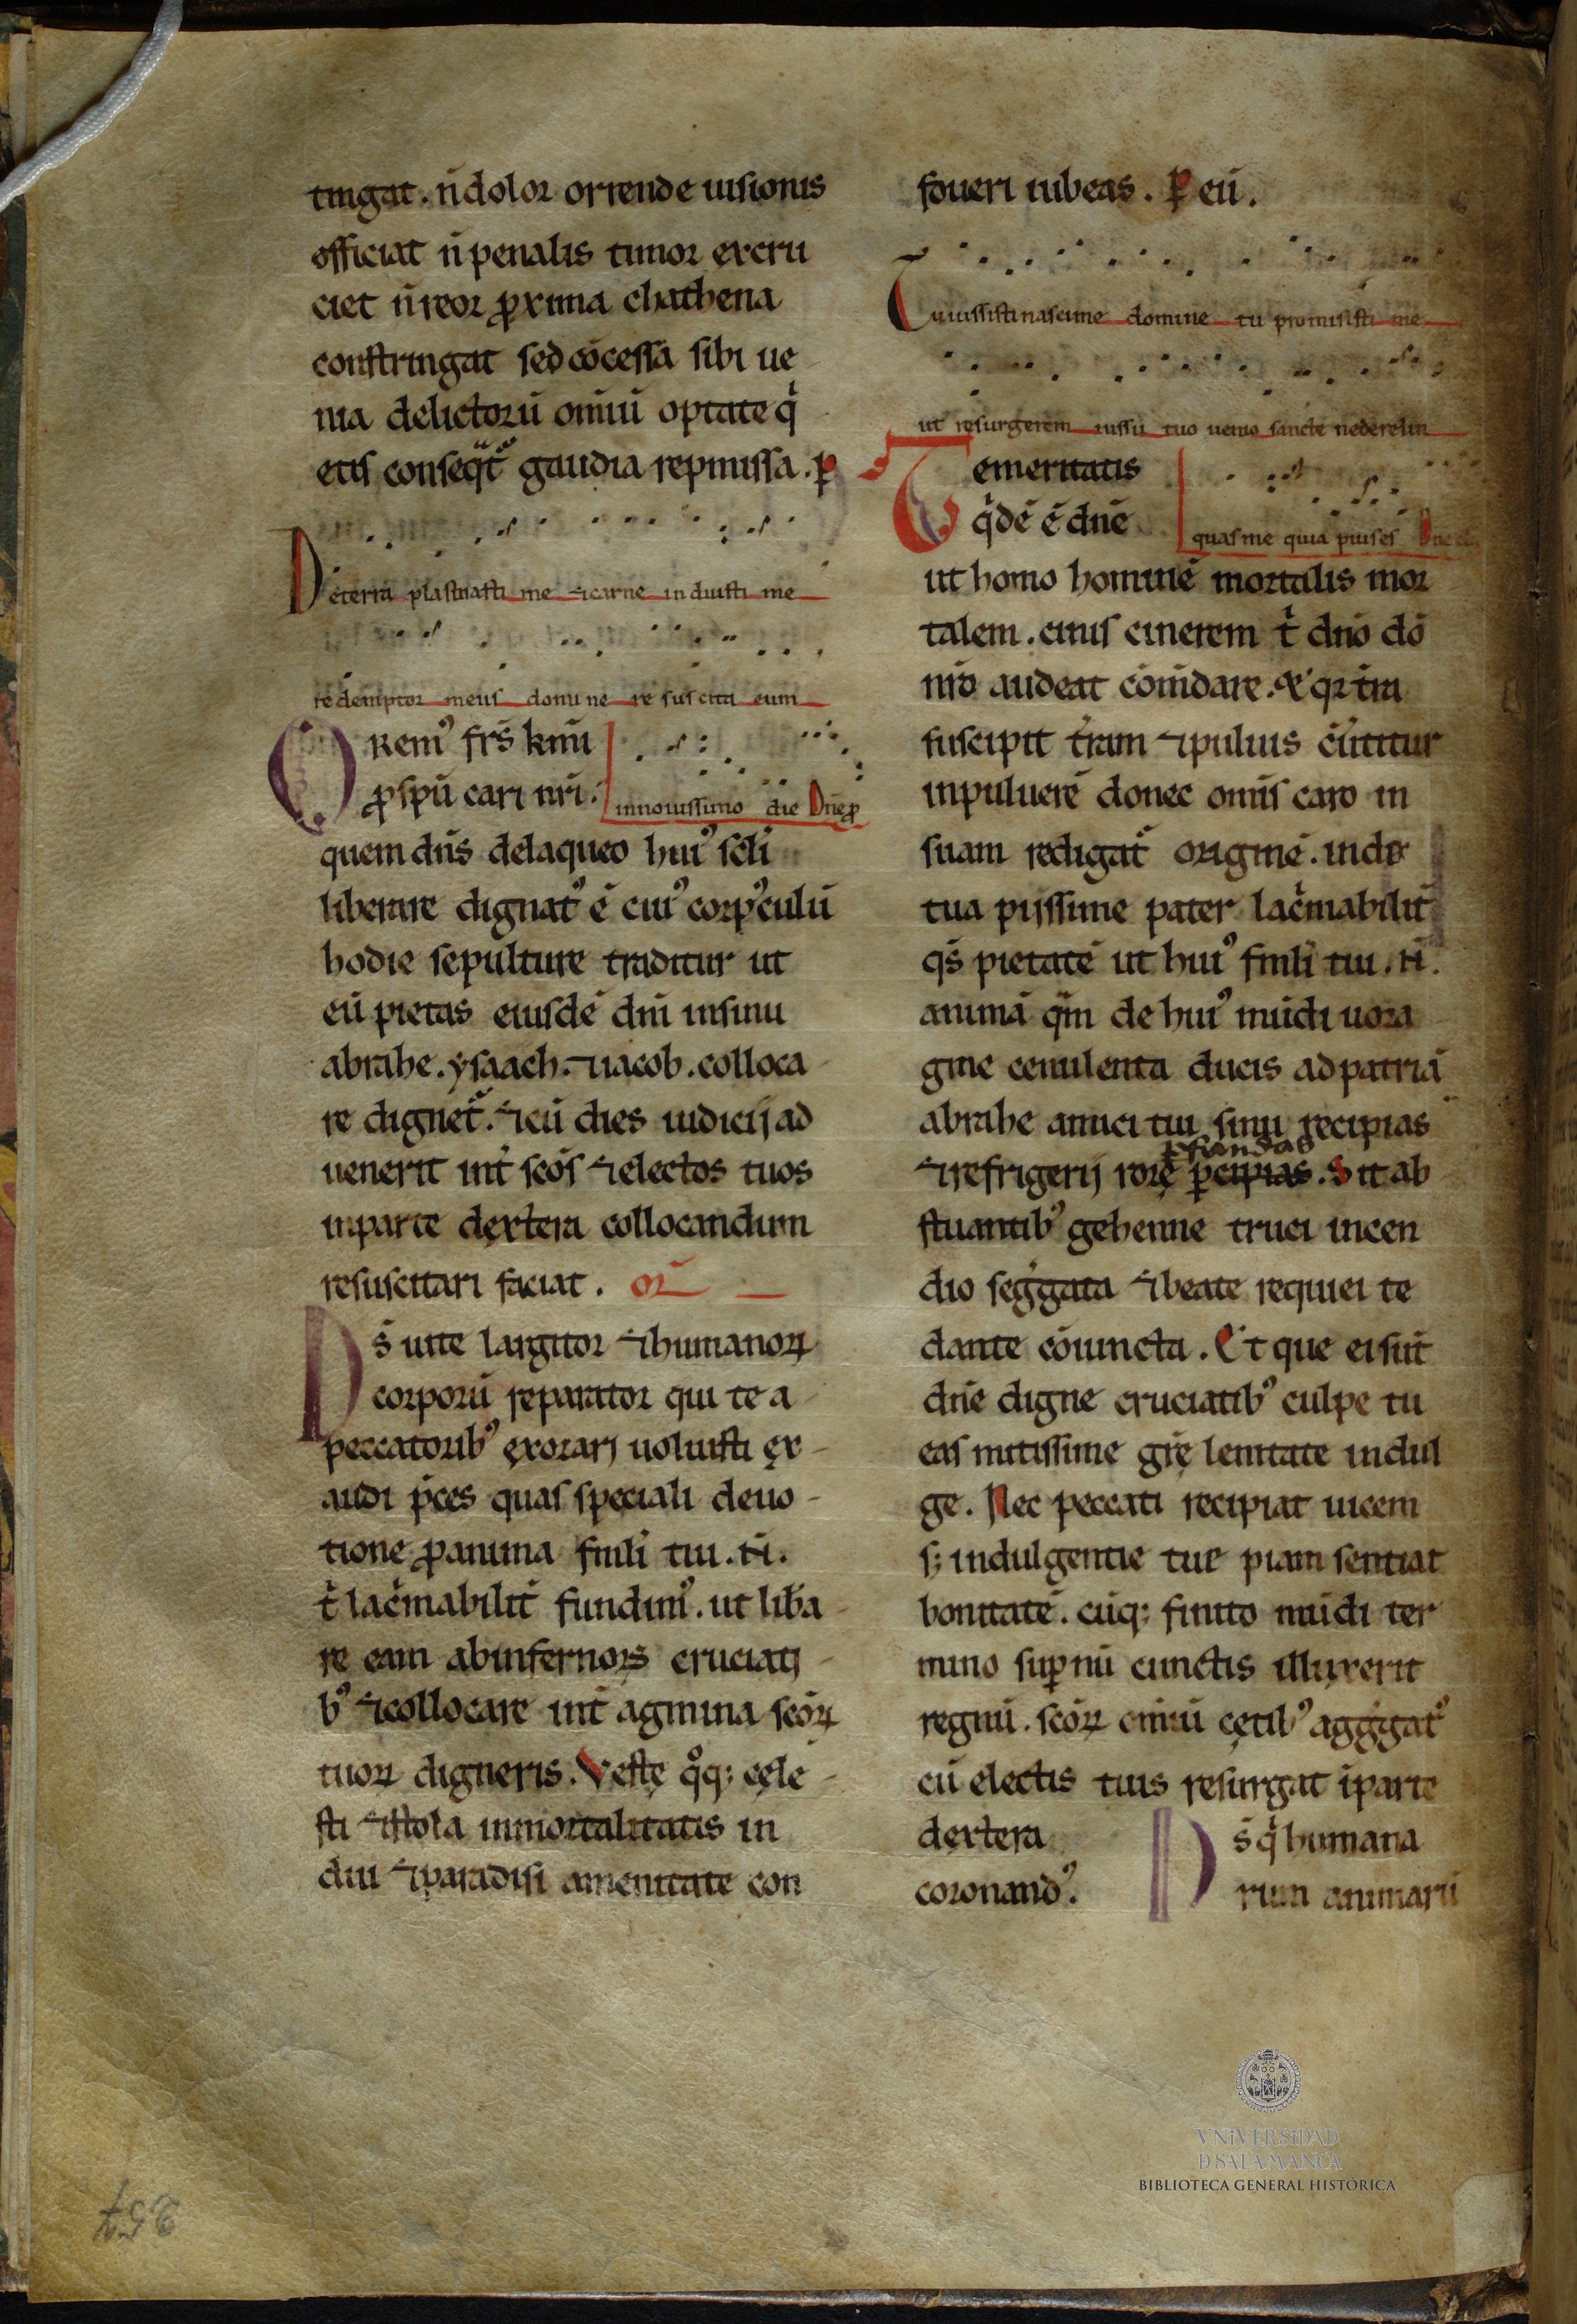 tingat. n̄ dolor orrende uisionis
officiat n̄ penalis timor excru
ciet n̄ reor ꝓxima chathena
constringat sed cōcessa sibi ue
nia delictorū om̄iū optate q̇
etis conseq̄t᷑ gaudia repmissa. ꝑ
De terra plasmasti me ⁊ carne induisti me
redemptor meus domine resuscita eum
Oremꝰ fr̄s km̄i
ꝓ spū cari nr̄i.
in nouissimo die Dn̄e ꝓ
quem dn̄s de laqueo huiꝰ sc̄li
liberare dignatꝰ ē cuiꝰ corpꝰculū
hodie sepulture traditur ut
eū pietas eiusdē dn̄i in sinu
abrahe. ysaach. ⁊ iacob. colloca
re dignet᷑. ⁊ cū dies iudicij ad
uenerit int̄ sc̄os ⁊ electos tuos
in parte dextera collocandum
resuscitari faciat. or̄
Ds̄ uite largitor ⁊ humanoꝝ
corporū reparator qui te a
peccatoribꝰ exorari uoluisti ex
audi p̄ces quas speciali deuo
tione ꝓ anima fm̄li tui. N̄.
t̄ lac̄mabilit̄ fundimꝰ. ut lib̄a
re eam ab infernoꝝ cruciati
bꝰ ⁊ collocare int̄ agmina sc̄oꝝ
tuoꝝ digneris. Veste q̊q; cęle
sti ⁊ stola inmortalitatis in
dui ⁊ paradisi amenitate con
foueri iubeas. ꝑ eū.
Tu iussisti nasci me domine tu promisisti me
ut resurgerem iussu tuo uenio sancte ne derelin
Temeritatis
q̇dē ē dn̄e
quas me quia pius es Dn̄e
ut homo hominē mortalis mor
talem. cinis cinerem t̄ dn̄o dō
nr̄o audeat cōm̄dare. S; qꝛ t̄ra
suscipit t̄ram ⁊ puluis c̄ūtitur
in puluerē donec om̄is caro in
suam redigat᷑ originē. inde
tua pijssime pater lac̄mabilit̄
qs̄ pietatē ut huiꝰ fm̄li tui. N̄.
animā q̄m de huiꝰ mūdi uora
gine cenulenta ducis ad patriā
abrahe amici tui sinu recipias
⁊ refrigerij rore ꝑcipias. Sit ab
stuantibꝰ gehenne truci incen
dio seḡgata ⁊ beate requiei te
dante cōiuncta. Et que ei sūt
dn̄e digne cruciatibꝰ culpe tu
eas mitissime gr̄e lenitate indul
ge. Nec peccati recipiat uicem
s; indulgentie tue piam sentiat
bonitatē. cūq; finito mūdi ter
mino suꝑnū cunctis illuxerit
regnū. sc̄oꝝ om̄iū cętibꝰ agḡgatꝰ
cū electis tuis resurgat ī parte
dextera
coronandꝰ.
Ds̄ q̇ humana
rum animarū
257
VNIVERSIDAD
D SALAMANCA
BIBLIOTECA GENERAL HISTÓRICA